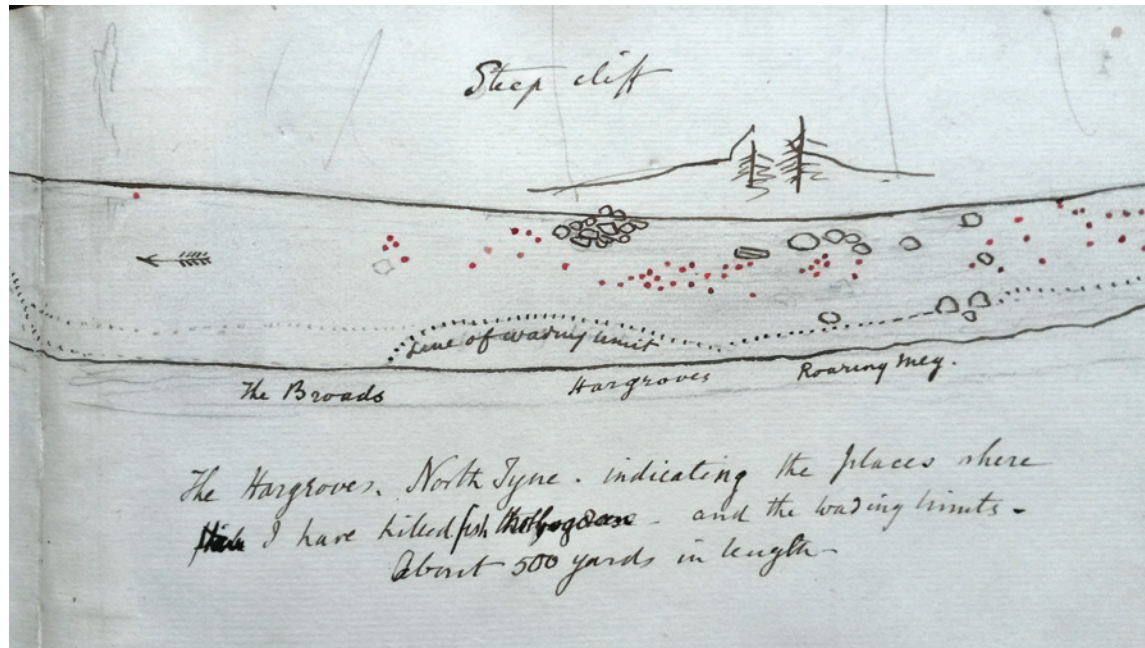 Steep cliff
Line of wading limit
The Broads
Hargroves
Roaring Meg.
The Hargroves. North Tyne. indicating the places where
I have killed fish - and the wading limits -
About 500 yards in length -